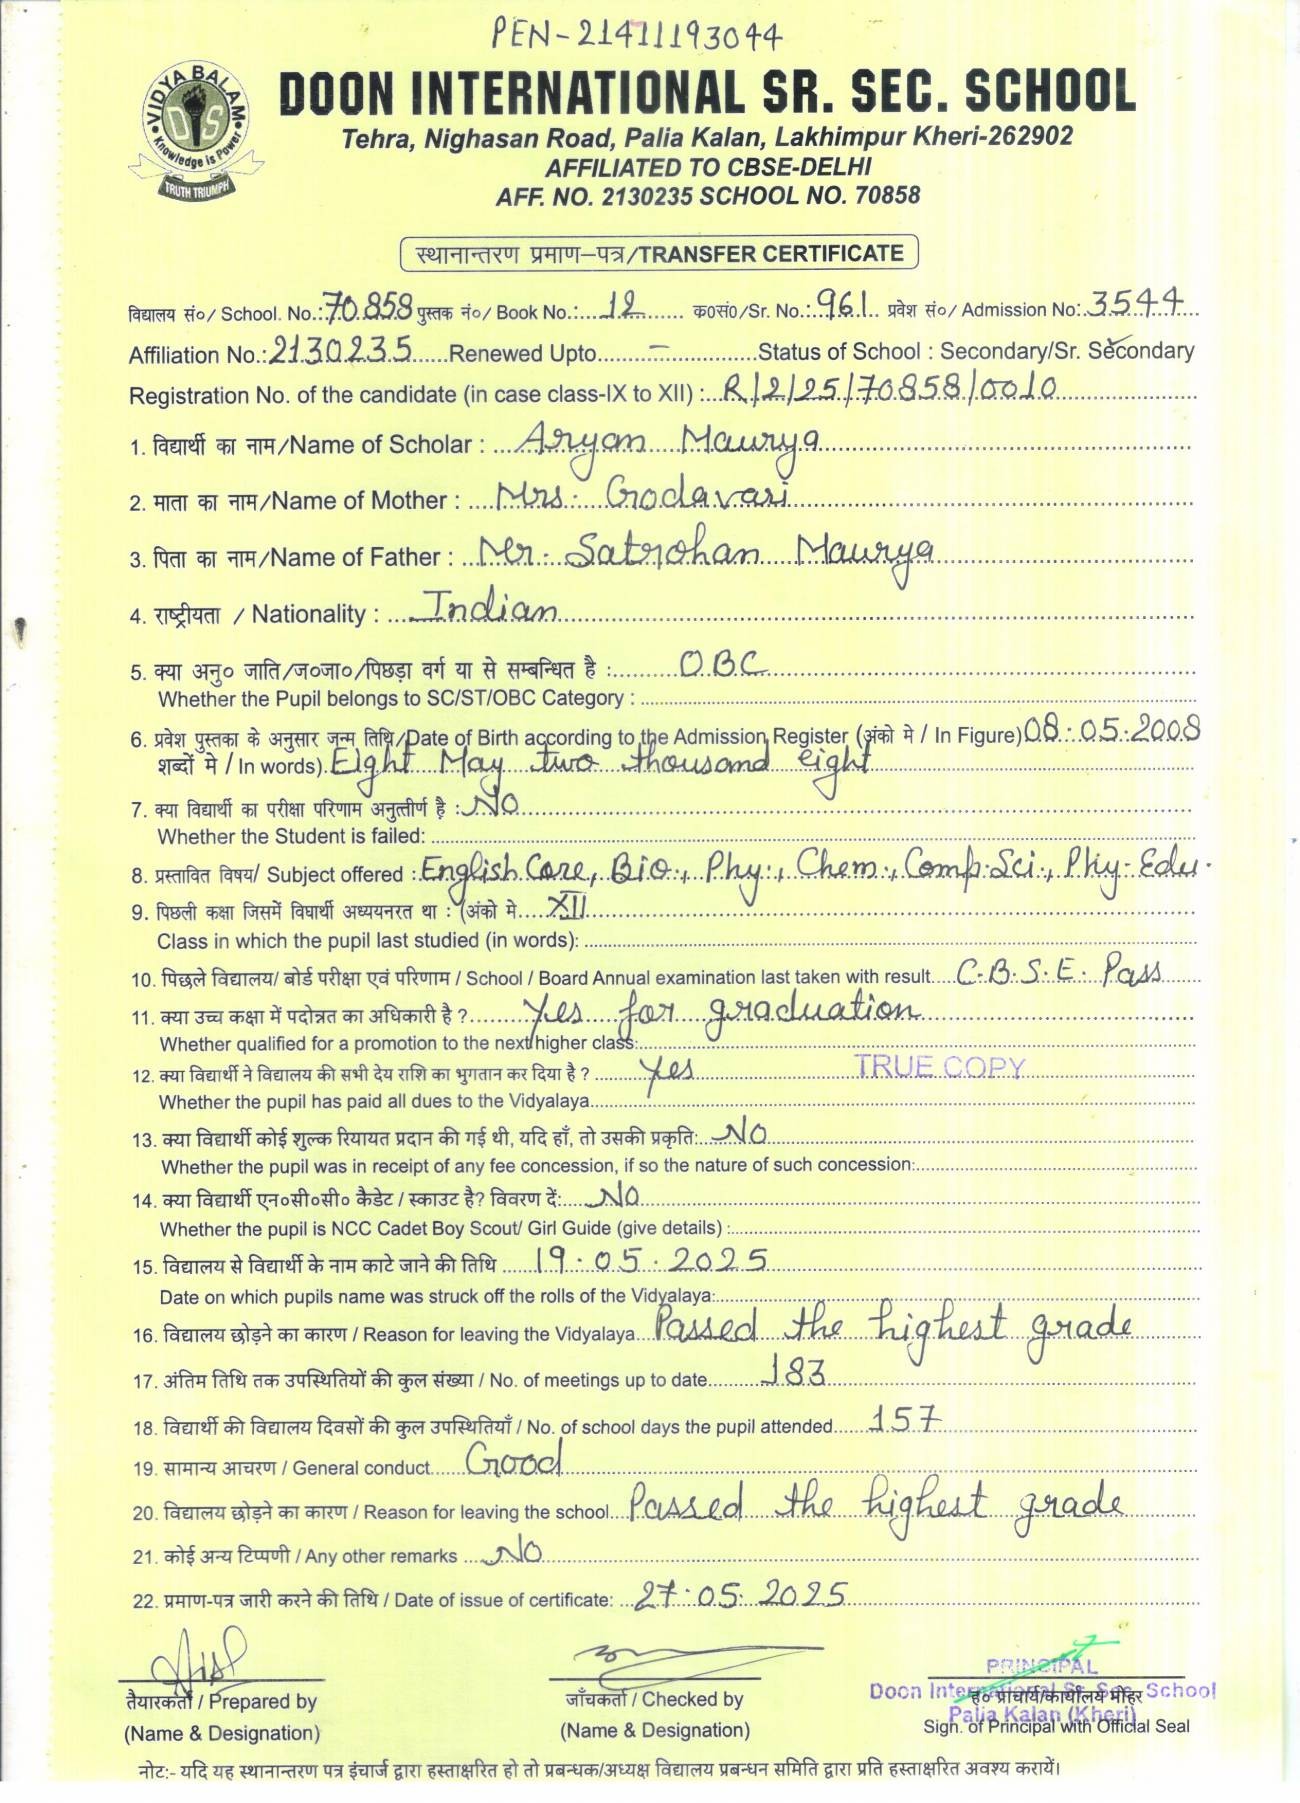 PEN-21411193044
VIDYA BALAM
DIS
Knowledge is Power
TRUTH TRIUMPH
DOON INTERNATIONAL SR. SEC. SCHOOL
Tehra, Nighasan Road, Palia Kalan, Lakhimpur Kheri-262902
AFFILIATED TO CBSE-DELHI
AFF. NO. 2130235 SCHOOL NO. 70858
स्थानान्तरण प्रमाण–पत्र/TRANSFER CERTIFICATE
विद्यालय सं०/ School. No.: 70858 पुस्तक नं०/ Book No.: 12 क०सं०/Sr. No.: 961 प्रवेश सं०/ Admission No: 3544
Affiliation No.: 2130235 Renewed Upto – Status of School : Secondary/Sr. Secondary
Registration No. of the candidate (in case class-IX to XII) : R/2/25/70858/0010
1. विद्यार्थी का नाम/Name of Scholar : Aryan Maurya
2. माता का नाम/Name of Mother : Mrs. Godavari
3. पिता का नाम/Name of Father : Mr. Satrohan Maurya
4. राष्ट्रीयता / Nationality : Indian
5. क्या अनु० जाति/ज०जा०/पिछड़ा वर्ग या से सम्बन्धित है : OBC
Whether the Pupil belongs to SC/ST/OBC Category :
6. प्रवेश पुस्तका के अनुसार जन्म तिथि/Date of Birth according to the Admission Register (अंको मे / In Figure) 08.05.2008
शब्दों मे / In words) Eight May two thousand eight
7. क्या विद्यार्थी का परीक्षा परिणाम अनुत्तीर्ण है : No
Whether the Student is failed:
8. प्रस्तावित विषय/ Subject offered : English Core, Bio., Phy., Chem., Comp.Sci., Phy.Edu.
9. पिछली कक्षा जिसमें विघार्थी अध्ययनरत था : (अंको मे XII
Class in which the pupil last studied (in words):
10. पिछले विद्यालय/ बोर्ड परीक्षा एवं परिणाम / School / Board Annual examination last taken with result C.B.S.E. Pass
11. क्या उच्च कक्षा में पदोन्नत का अधिकारी है ? Yes for graduation
Whether qualified for a promotion to the next higher class:
12. क्या विद्यार्थी ने विद्यालय की सभी देय राशि का भुगतान कर दिया है ? Yes TRUE COPY
Whether the pupil has paid all dues to the Vidyalaya
13. क्या विद्यार्थी कोई शुल्क रियायत प्रदान की गई थी, यदि हाँ, तो उसकी प्रकृति: No
Whether the pupil was in receipt of any fee concession, if so the nature of such concession:
14. क्या विद्यार्थी एन०सी०सी० कैडेट / स्काउट है? विवरण दें: No
Whether the pupil is NCC Cadet Boy Scout/ Girl Guide (give details) :
15. विद्यालय से विद्यार्थी के नाम काटे जाने की तिथि 19.05.2025
Date on which pupils name was struck off the rolls of the Vidyalaya:
16. विद्यालय छोड़ने का कारण / Reason for leaving the Vidyalaya Passed the highest grade
17. अंतिम तिथि तक उपस्थितियों की कुल संख्या / No. of meetings up to date 183
18. विद्यार्थी की विद्यालय दिवसों की कुल उपस्थितियाँ / No. of school days the pupil attended 157
19. सामान्य आचरण / General conduct Good
20. विद्यालय छोड़ने का कारण / Reason for leaving the school Passed the highest grade
21. कोई अन्य टिप्पणी / Any other remarks No
22. प्रमाण-पत्र जारी करने की तिथि / Date of issue of certificate: 27.05.2025
PRINCIPAL
Doon International Sr. Sec. School
Palia Kalan (Kheri)
तैयारकर्ता / Prepared by जाँचकर्ता / Checked by ह० प्राचार्य/कार्यालय मोहर
(Name & Designation) (Name & Designation) Sign. of Principal with Official Seal
नोट:- यदि यह स्थानान्तरण पत्र इंचार्ज द्वारा हस्ताक्षरित हो तो प्रबन्धक/अध्यक्ष विद्यालय प्रबन्धन समिति द्वारा प्रति हस्ताक्षरित अवश्य करायें।